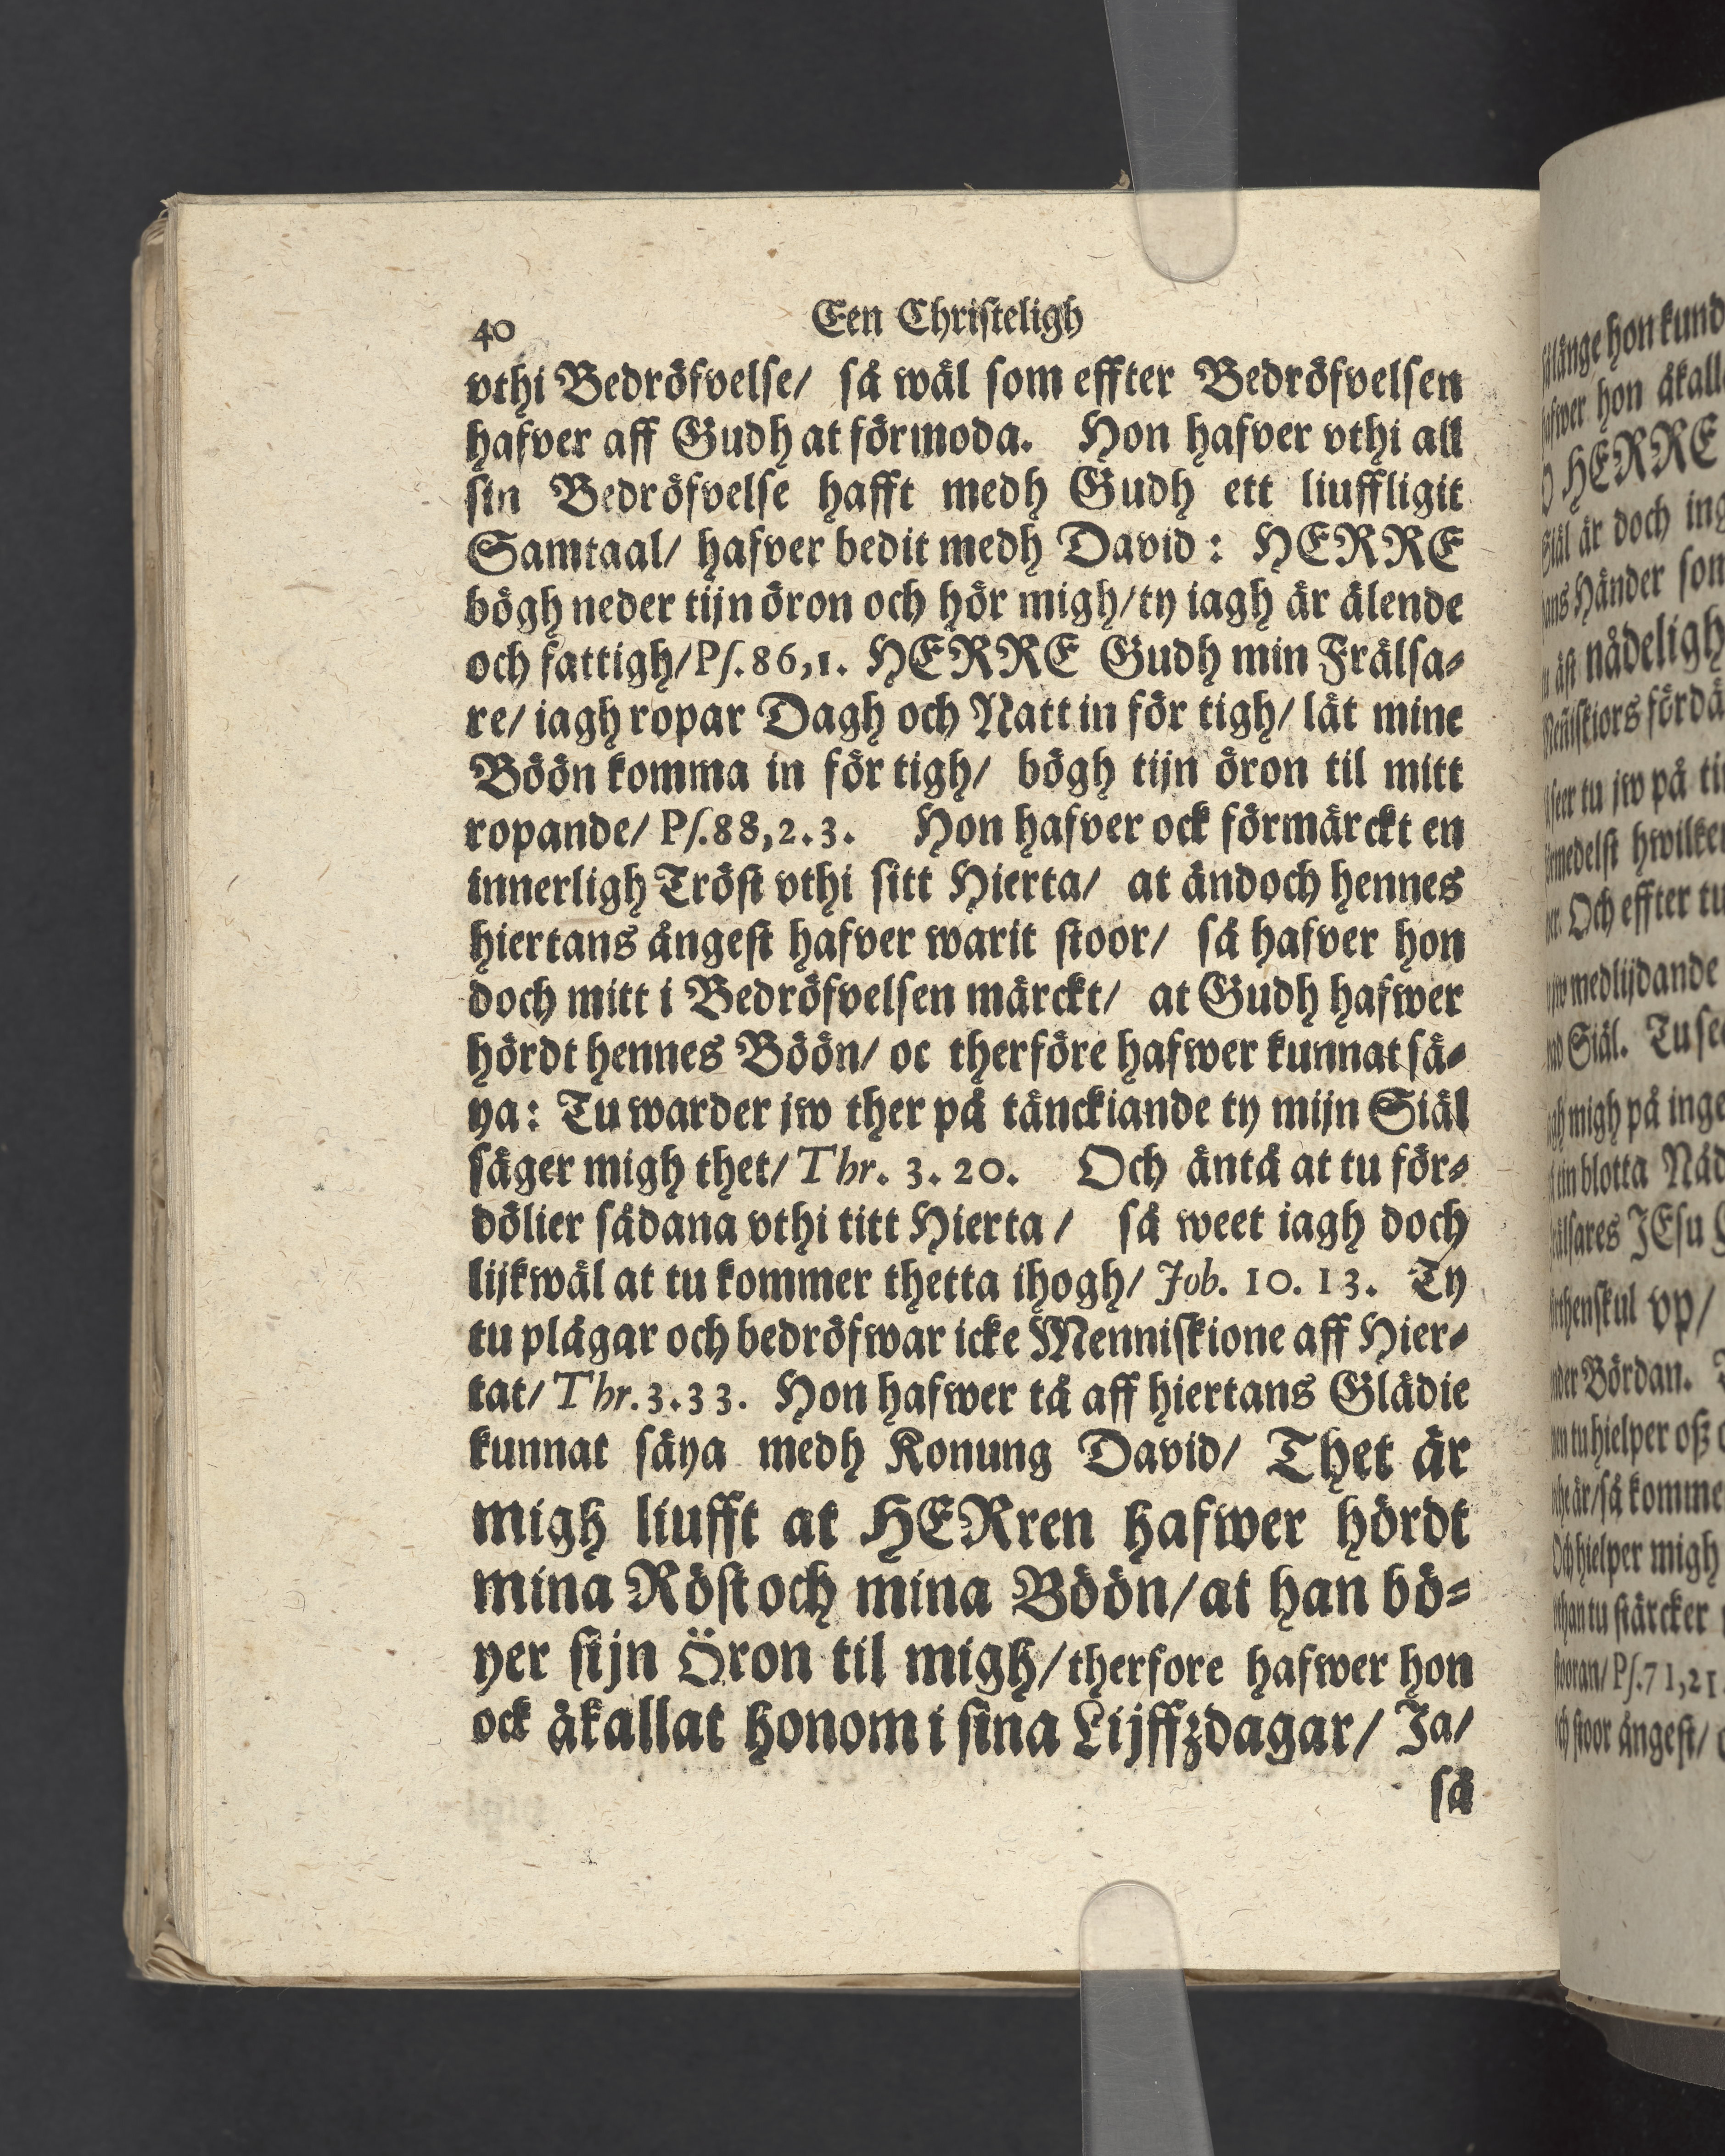 40 Een Christeligh
vthi Bedröfvelse/ så wäl som effter Bedröfvelsen
hafver aff Gudh at förmoda. Hon hafver vthi all
sin Bedröfvelse hafft medh Gudh ett liuffligit
Samtaal/ hafver bedit medh David: HERRE
bögh neder tijn öron och hör migh/ty iagh är älende
och fattigh/Ps.86,1. HERRE Gudh min Frälsa-
re/ iagh ropar Dagh och Natt in för tigh/ lät mine
Böön komma in för tigh/ bögh tijn öron til mitt
ropande/ Ps.88,2.3. Hon hafver ock förmärckt en
innerligh Tröst vthi sitt Hierta/ at ändoch hennes
hiertans ångest hafver warit stoor/ så hafver hon
doch mitt i Bedröfvelsen märckt/ at Gudh hafwer
hördt hennes Böön/ oc therföre hafwer kunnat sä-
ya: Tu warder jw ther på tänckiande ty mijn Siäl
säger migh thet/ Thr. 3. 20. Och äntå at tu för-
dölier sådana vthi titt Hierta/ så weet iagh doch
lijkwäl at tu kommer thetta ihogh/ Job. 10. 13. Ty
tu plågar och bedröfwar icke Menniskione aff Hier-
tat/ Thr.3.33. Hon hafwer tå aff hiertans Glädie
kunnat säya medh Konung David/ Thet är
migh liufft at HERren hafwer hördt
mina Röst och mina Böön/at han bö-
yer sijn Öron til migh/therfore hafwer hon
ock åkallat honom i sina Lijffzdagar/ Ja/
så
länge hon kund
hon åkall
HERRE
är doch ing
Händer som
äst nådeligh
tu jw på ti
hwilken
Och effter tu
medlijdande
Siäl. Tu see
migh på inge
tin blotta Nåd
JEsu
vp/
Bördan.
tu hielper oß
är/så komme
Och hielper migh
tu stärcker
Ps.71,21.
stoor ångest/